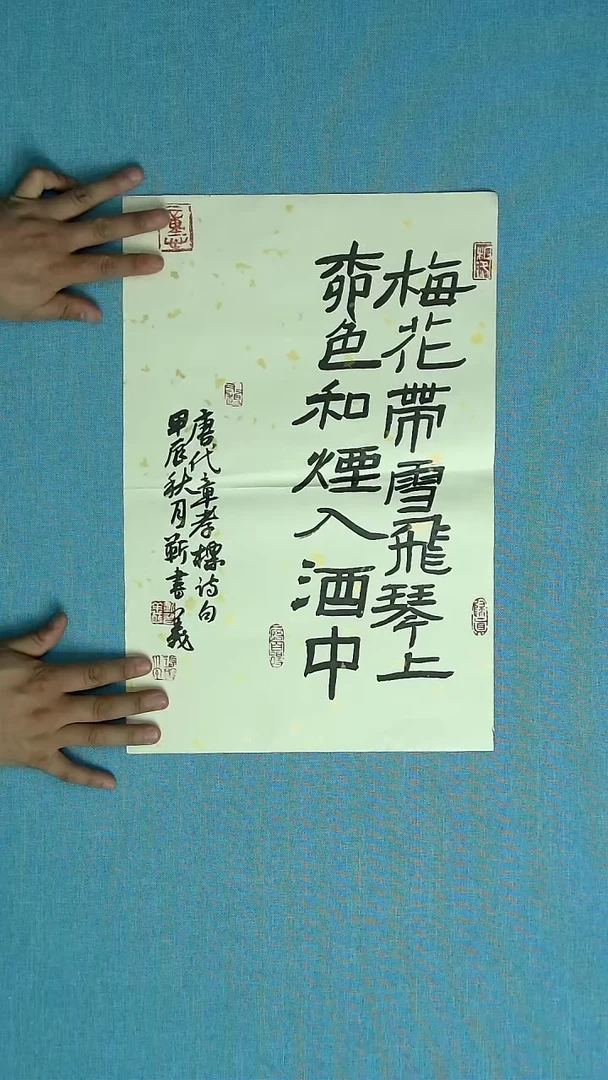 梅花帶雪飛琴上
柳色和煙入酒中
唐代章孝標诗句
甲辰秋月靳書義